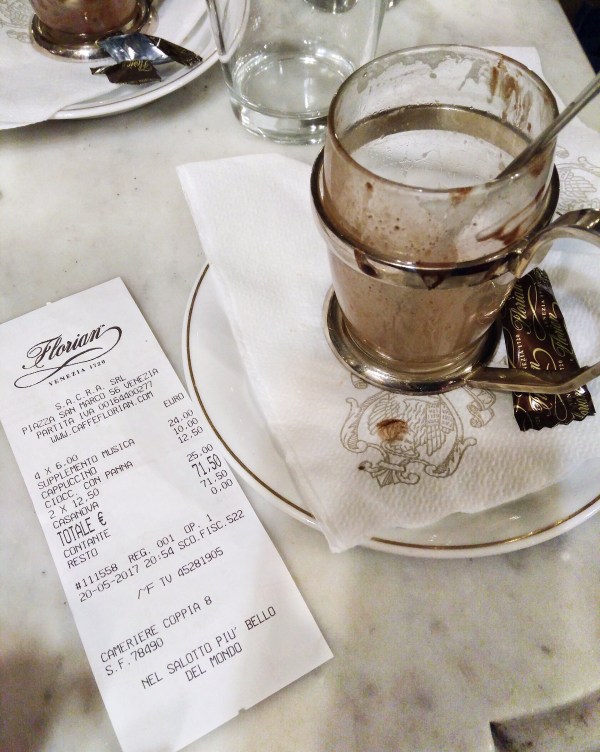 Florian
VENEZIA 1720
S.A.C.R.A. SRL
PIAZZA SAN MARCO 56 VENEZIA
PARTITA IVA 00164400277
WWW.CAFFEFLORIAN.COM
EURO
4 X 6,00
SUPPLEMENTO MUSICA 24,00
CAPPUCCINO 10,00
CIOCC. CON PANNA 12,50
2 X 12,50
CASANOVA 25,00
TOTALE € 71,50
CONTANTE 71,50
RESTO 0,00
#111558 REG. 001 OP. 1
20-05-2017 20:54 SCO.FISC.522
MF TV 45281905
CAMERIERE COPPIA 8
S.F. 78490
NEL SALOTTO PIU' BELLO
DEL MONDO
Florian